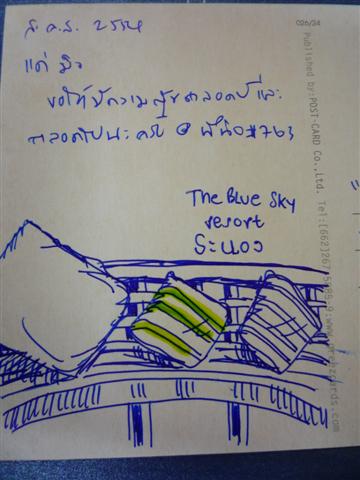 ส.ค.ส. ๒๕๕๔
แด่ มิว
ขอให้มีความสุขตลอดปีและ
ตลอดไปนะครับ @
The Blue Sky
resort
ระนอง
026/34
Published by:POST-CARD Co.,Ltd. Tel:(662)